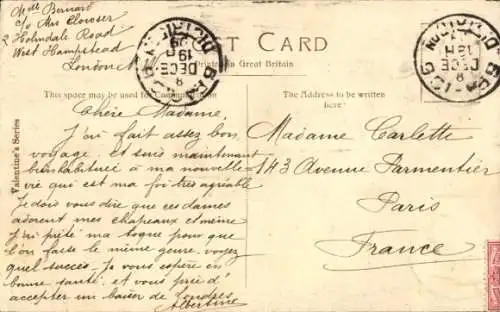 Mlle Bernard
c/o Mrs Clowser
2 Holmdale Road
West Hampstead
London N.W.
POST CARD
Printed in Great Britain
This space may be used for Communication
The Address to be written
here
Valentine's Series
Chère Madame,
J'ai fait assez bon
voyage et suis maintenant
bien habituée à ma nouvelle
vie qui est ma foi très agréable
Je dois vous dire que ces dames
adorent mes chapeaux et même
j'ai prêté ma toque pour que
l'on fasse le même genre, voyez
quel succès. Je vous espère en
bonne santé et vous prie d'
accepter un baiser de Londres
Albertine
Madame Carlette
143 Avenue Parmentier
Paris
France
DECE
19
DECE
19